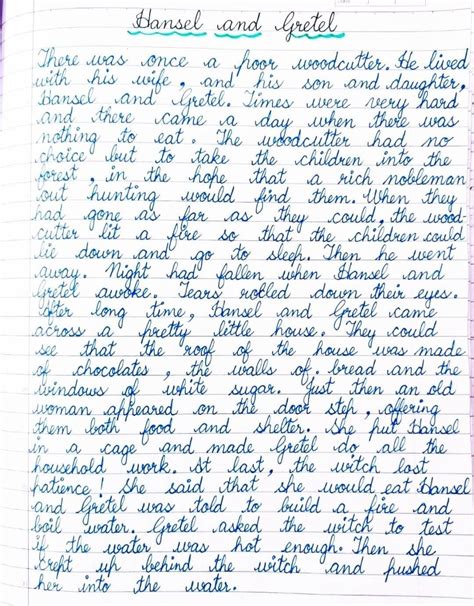 Hansel and Gretel
There was once a poor woodcutter. He lived
with his wife, and his son and daughter,
Hansel and Gretel. Times were very hard
and there came a day when there was
nothing to eat. The woodcutter had no
choice but to take the children into the
forest, in the hope that a rich nobleman
out hunting would find them. When they
had gone as far as they could, the wood-
cutter lit a fire so that the children could
lie down and go to sleep. Then he went
away. Night had fallen when Hansel and
Gretel awoke. Tears rolled down their eyes.
After long time, Hansel and Gretel came
across a pretty little house. They could
see that the roof of the house was made
of chocolates, the walls of. bread and the
windows of white sugar. Just then an old
woman appeared on the door step, offering
them both food and shelter. She put Hansel
in a cage and made Gretel do all the
household work. At last, the witch lost
patience! She said that she would eat Hansel
and Gretel was told to build a fire and
boil water. Gretel asked the witch to test
if the water was hot enough. Then she
crept up behind the witch and pushed
her into the water.